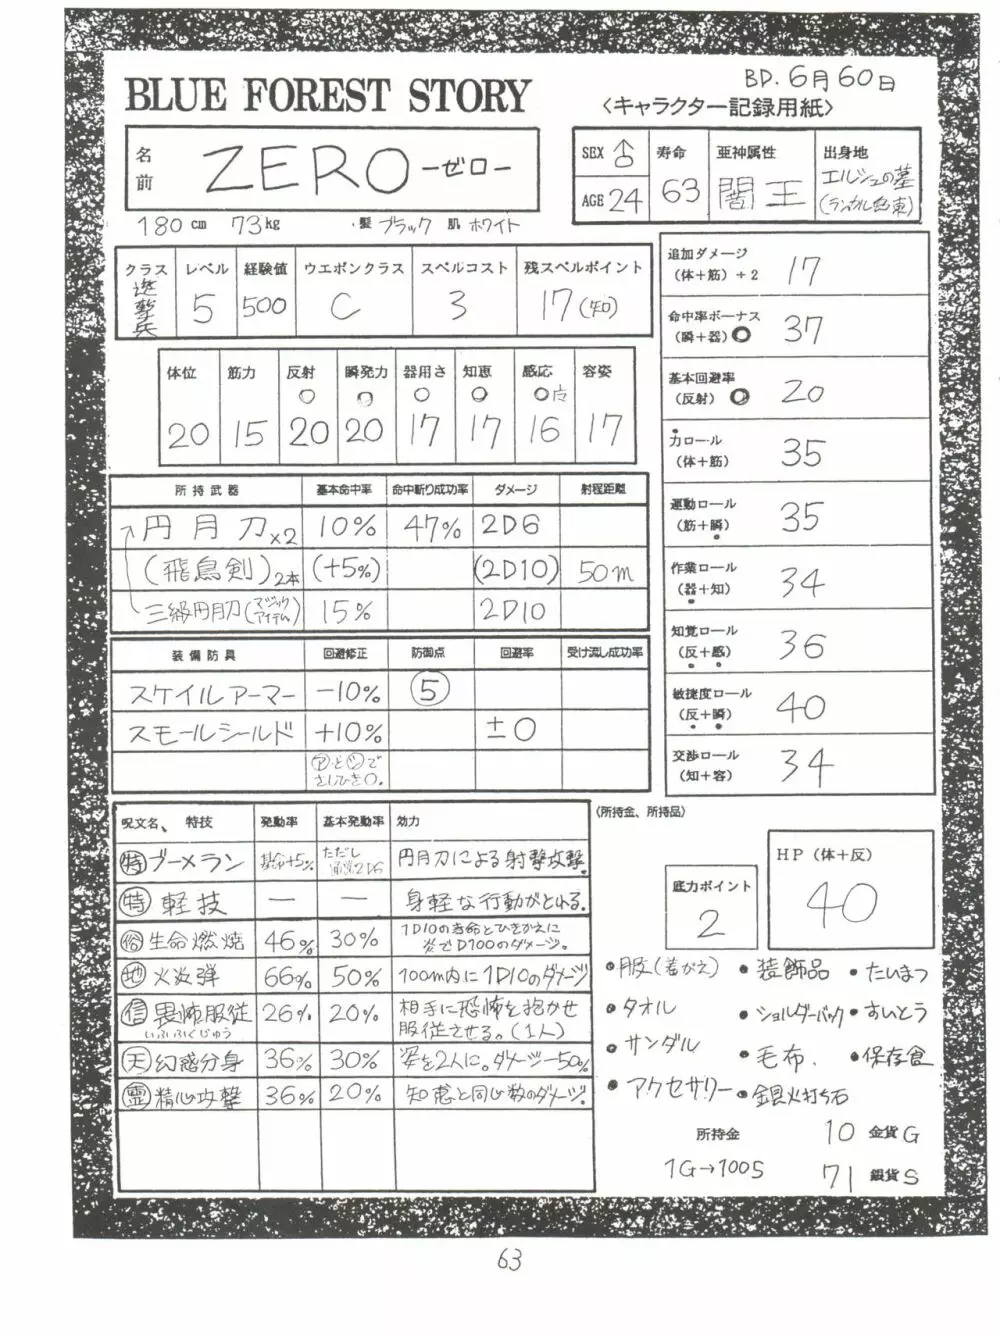 BD. 6月60日
BLUE FOREST STORY
〈キャラクター記録用紙〉
名前 ZERO -ゼロ-
SEX ♂ AGE 24
寿命 63
亜神属性 闇王
出身地 エルシュの墓
180cm 73kg ・髪 ブラック 肌 ホワイト
クラス レベル 経験値 ウエポンクラス スペルコスト 残スペルポイント
遊撃兵 5 500 C 3 17(知)
体位 筋力 反射 瞬発力 器用さ 知恵 感応 容姿
20 15 20 20 17 17 16 17
追加ダメージ (体+筋)÷2 17
命中率ボーナス (瞬+器) 37
基本回避率 (反射) 20
力ロール (体+筋) 35
運動ロール (筋+瞬) 35
作業ロール (器+知) 34
知覚ロール (反+感) 36
敏捷度ロール (反+瞬) 40
交渉ロール (知+容) 34
所持武器 基本命中率 命中斬り成功率 ダメージ 射程距離
円月刀×2 10% 47% 2D6
(飛鳥剣)2本 (+5%) (2D10) 50m
三級円月刀(マジックアイテム) 15% 2D10
装備防具 回避修正 防御点 回避率 受け流し成功率
スケイルアーマー -10% ⑤
スモールシールド +10% ±0
㋐と㋛でさしひき0.
呪文名、特技 発動率 基本発動率 効力
㊕ブーメラン 基命+5% ただし通常2D6 円月刀による射撃攻撃.
㊕軽技 — — 身軽な行動がとれる.
生命燃焼 46% 30% 1D10の寿命とひきかえに炎でD100のダメージ。
地 火炎弾 66% 50% 100m内に1D10のダメージ
信 畏怖服従 いふふくじゅう 26% 20% 相手に恐怖を抱かせ服従させる。(1人)
天 幻惑分身 36% 30% 姿を2人に。ダメージ-50%
霊 精心攻撃 36% 20% 知恵と同じ数のダメージ.
(所持金、所持品)
底力ポイント 2
HP(体+反) 40
・服(着がえ) ・装飾品 ・たいまつ
・タオル ・ショルダーバック ・すいとう
・サンダル ・毛布. ・保存食
・アクセサリー ・銀火打ち石
所持金 10 金貨G
1G→100S 71 銀貨S
63